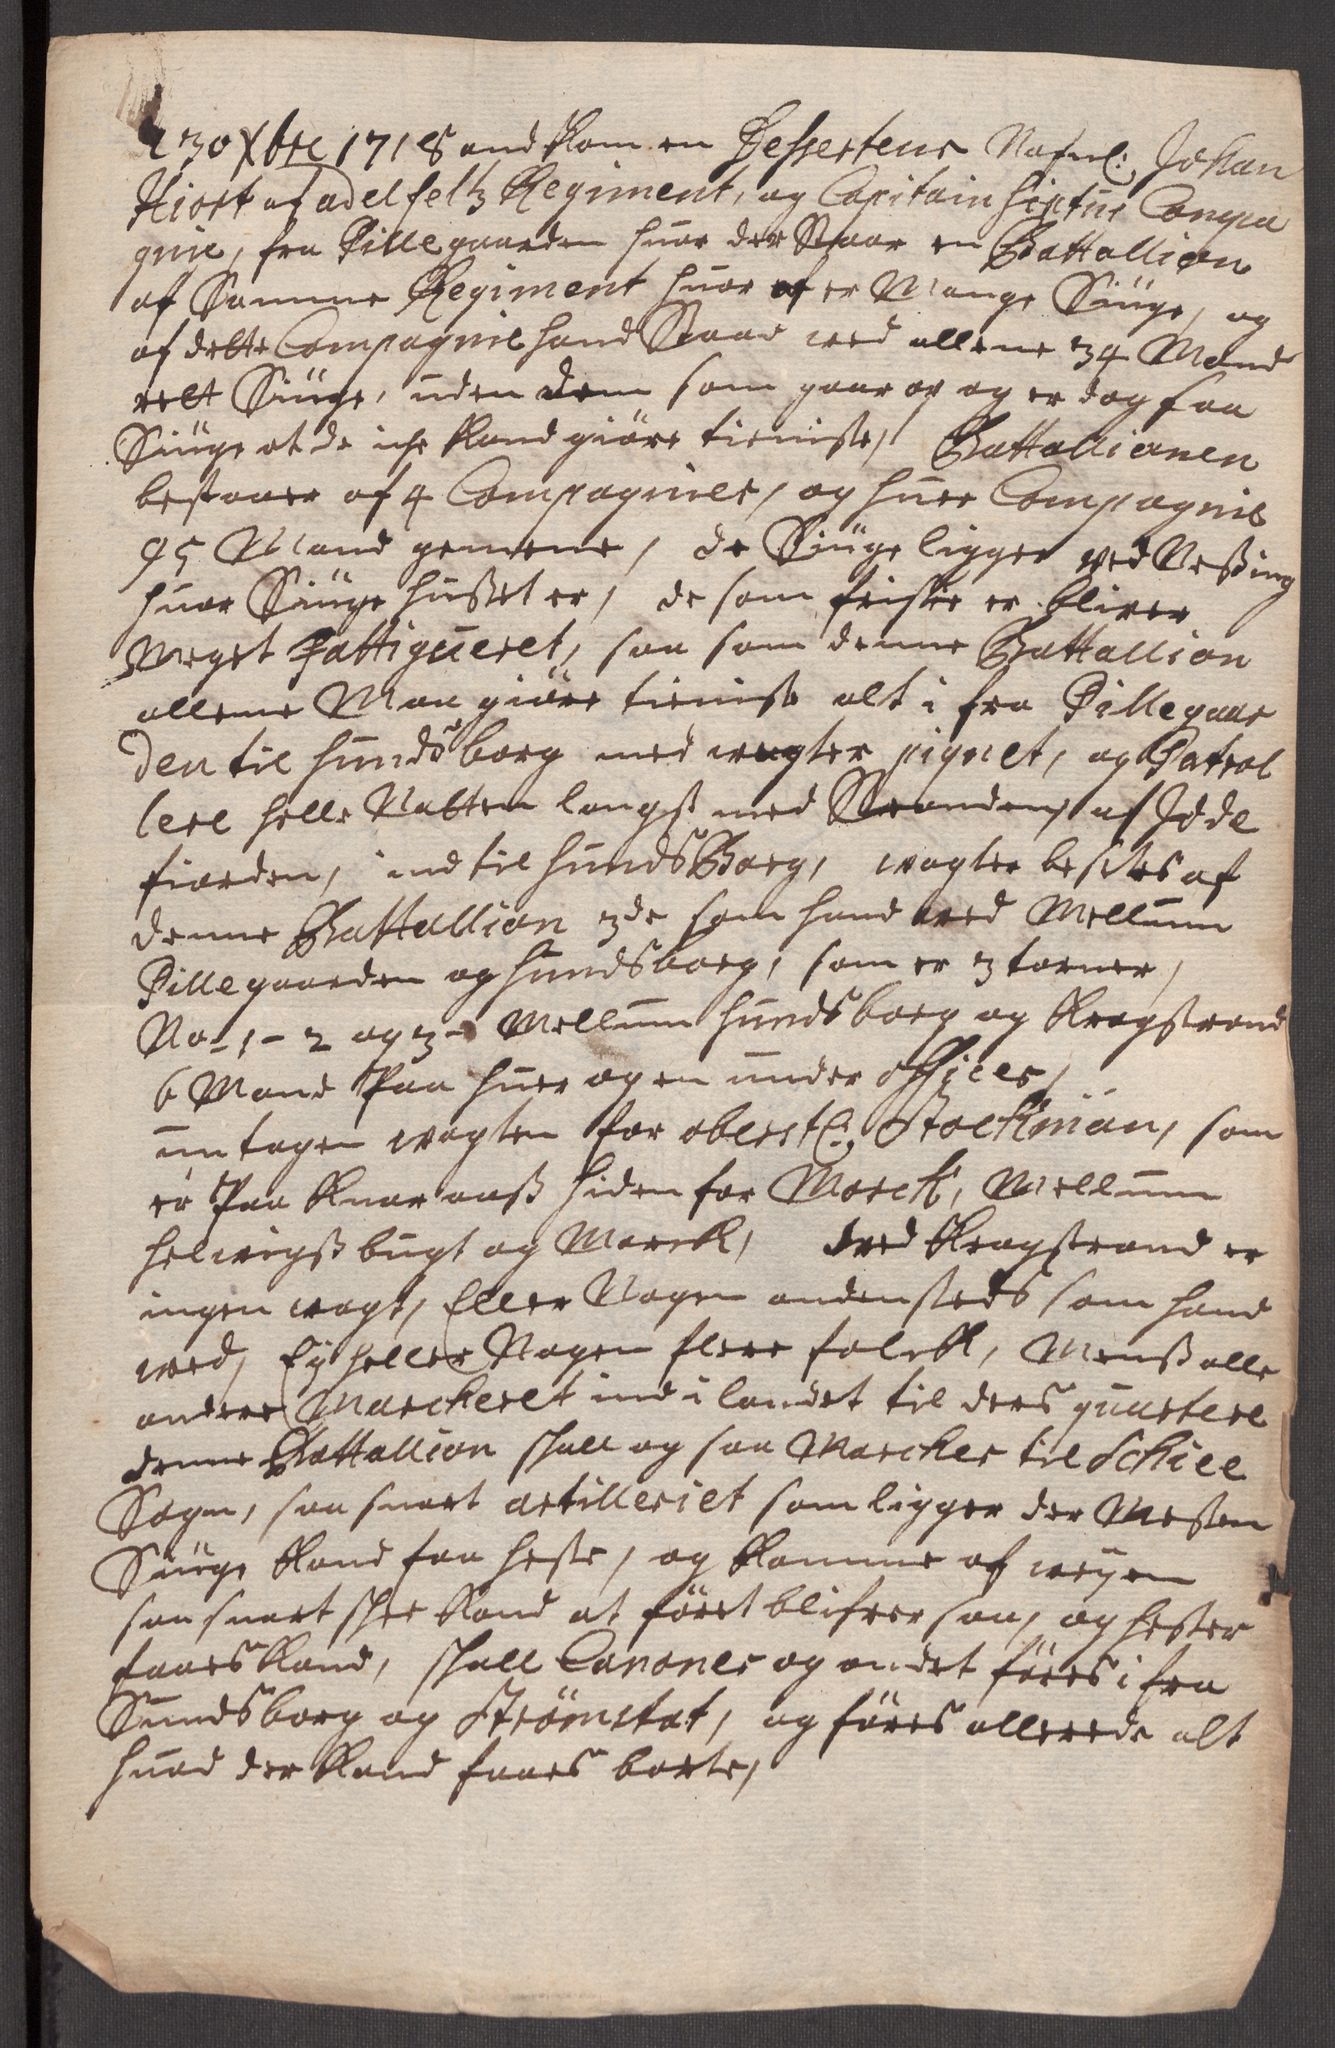 d 30 Xbre 1718 andkom en Desserteur Nafnl: Johan
Hiort af adelfeltz Regiment, og Capitain Compa
gnie, fra Pillegaarden huor der Staar en Battallion
af Samme Regiment huor af er Mange Siüge, og
af dette Compagnie hand Staar ved allene 34 Mand
rett Siüge, uden dem som gaar op og er dog saa
Siüge at de iche kand giöre tieniste, Battallionen
bestaaer af 4 Compagnier, og huer Compagnie
95 Mand gemene, de Siüge ligger ved
huor Siüge husset er, de som friske er bliver
Meget fattigueret, saa som denne Battallion
allene Maa giöre tieniste alt i fra Pillegaar
den til hundsborg med wagter piqvet, og Patrol
lere helle Natten langst med Stranden, af Idde
fiorden, ind til hundsBorg, wagter besettes af
denne Battallion 3de som hand ved Mellum
Pillegaarden og hundsborg, som er 3 torner,
No - 1 - 2 og 3 - Mellum hundsborg og Krogstrand
6 Mand paa huer og en under officer,
untagen wagten for oberstl: Stockman, som
er paa hiden for Morck, Mellum
helwigss bugt og Morck, ved Krogstrand er
ingen wagt, Eller Nogen andensteds som hand
ved, Ey heller Nogen flere folck, Menss alle
andre Marcheret ind i landet til ders quartere
denne Battallion skall og saa Marcher til Schiee
Sogn, saa snart artilleriet som ligger der Mesten
Siüge kand faa heste, og komme af weyen
saa snart skee kand at föret blifver saa, og hester
faaes kand, skall Canoner og andet föres i fra
Sundsborg og Strömstat, og föres allerede alt
huad der kand faaes borte,